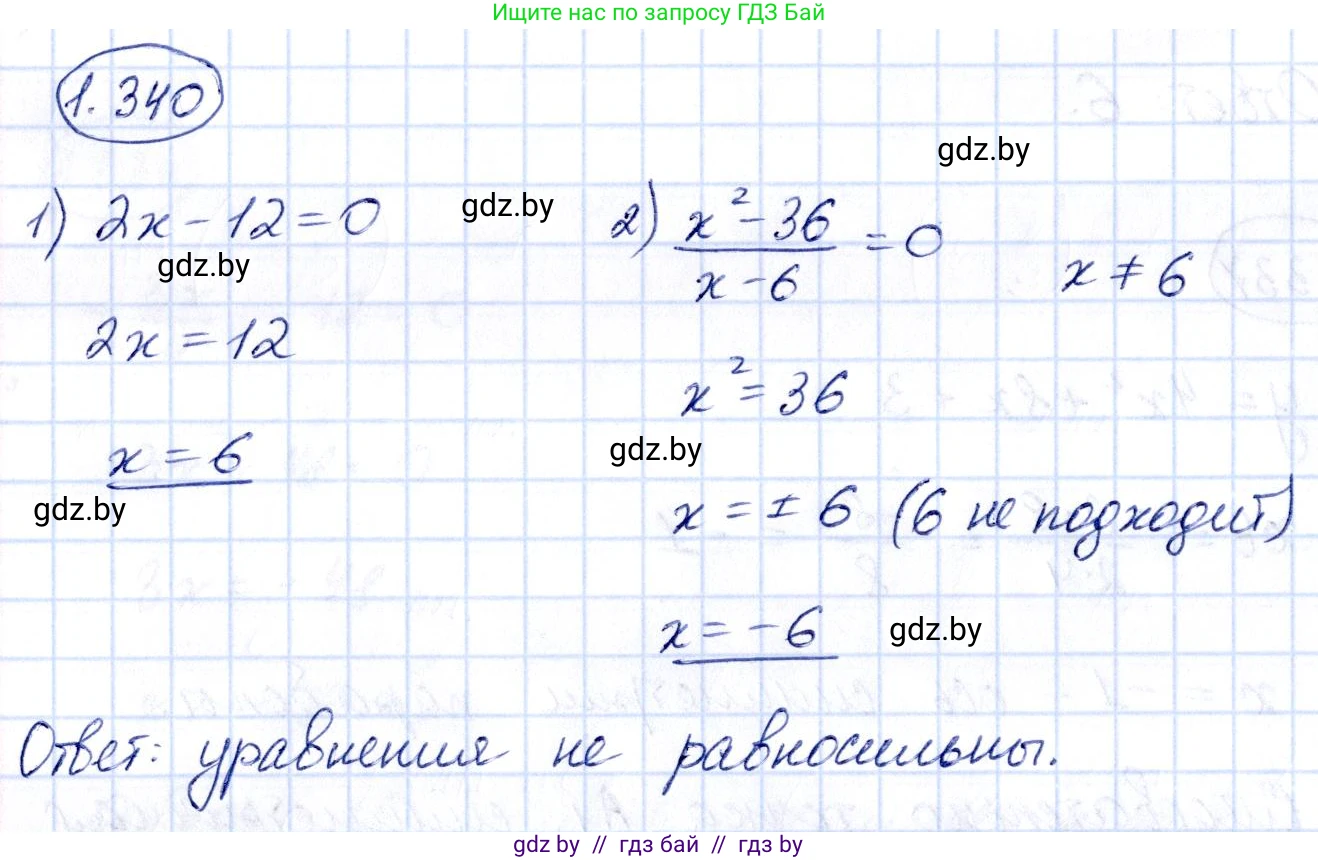 Ищите нас по запросу ГДЗ Бай
1.340
gdz.by
1) 2x - 12 = 0
gdz.by
2) (x² - 36)/(x - 6) = 0
x ≠ 6
gdz.by
2x = 12
x² = 36
x = 6
gdz.by
gdz.by
x = ± 6 (6 не подходит)
x = -6
gdz.by
Ответ: уравнения не равносильны.
gdz.by // гдз бай // гдз.by